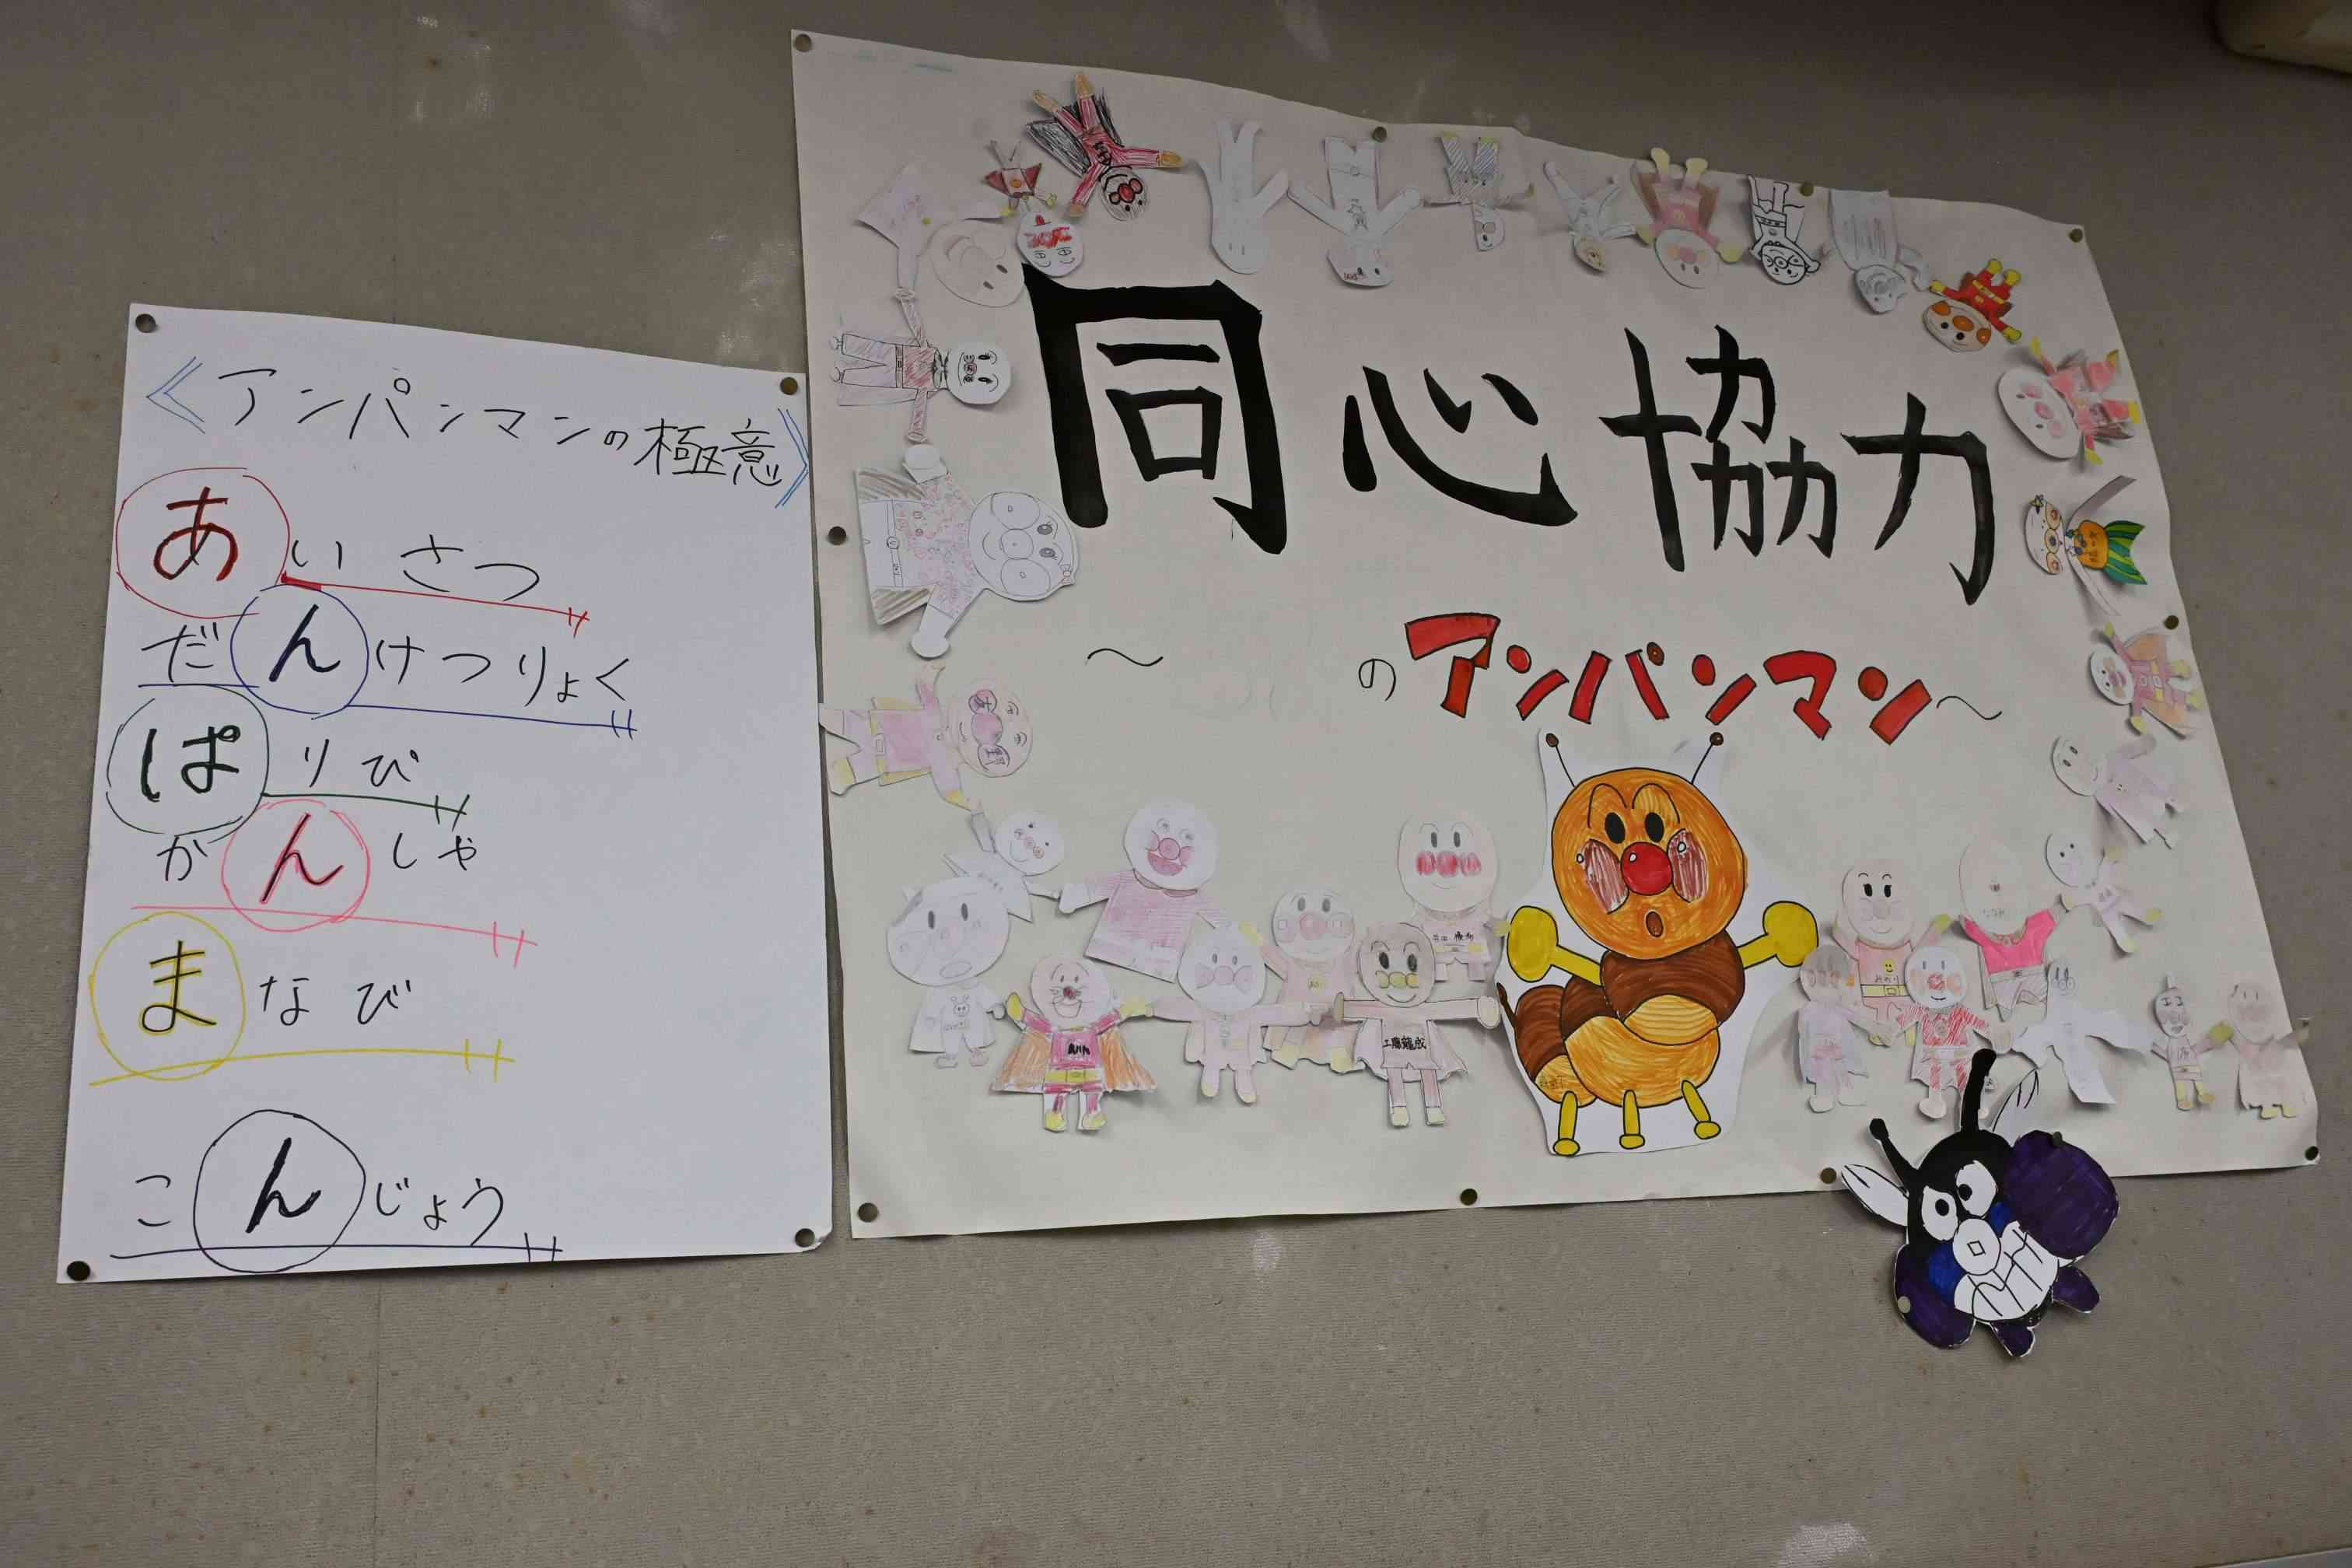 《アンパンマンの極意》
あいさつ
だんけつりょく
ぱりぴ
かんしゃ
まなび
こんじょう
同心協力
～ のアンパンマン～
工藤龍成
みのり